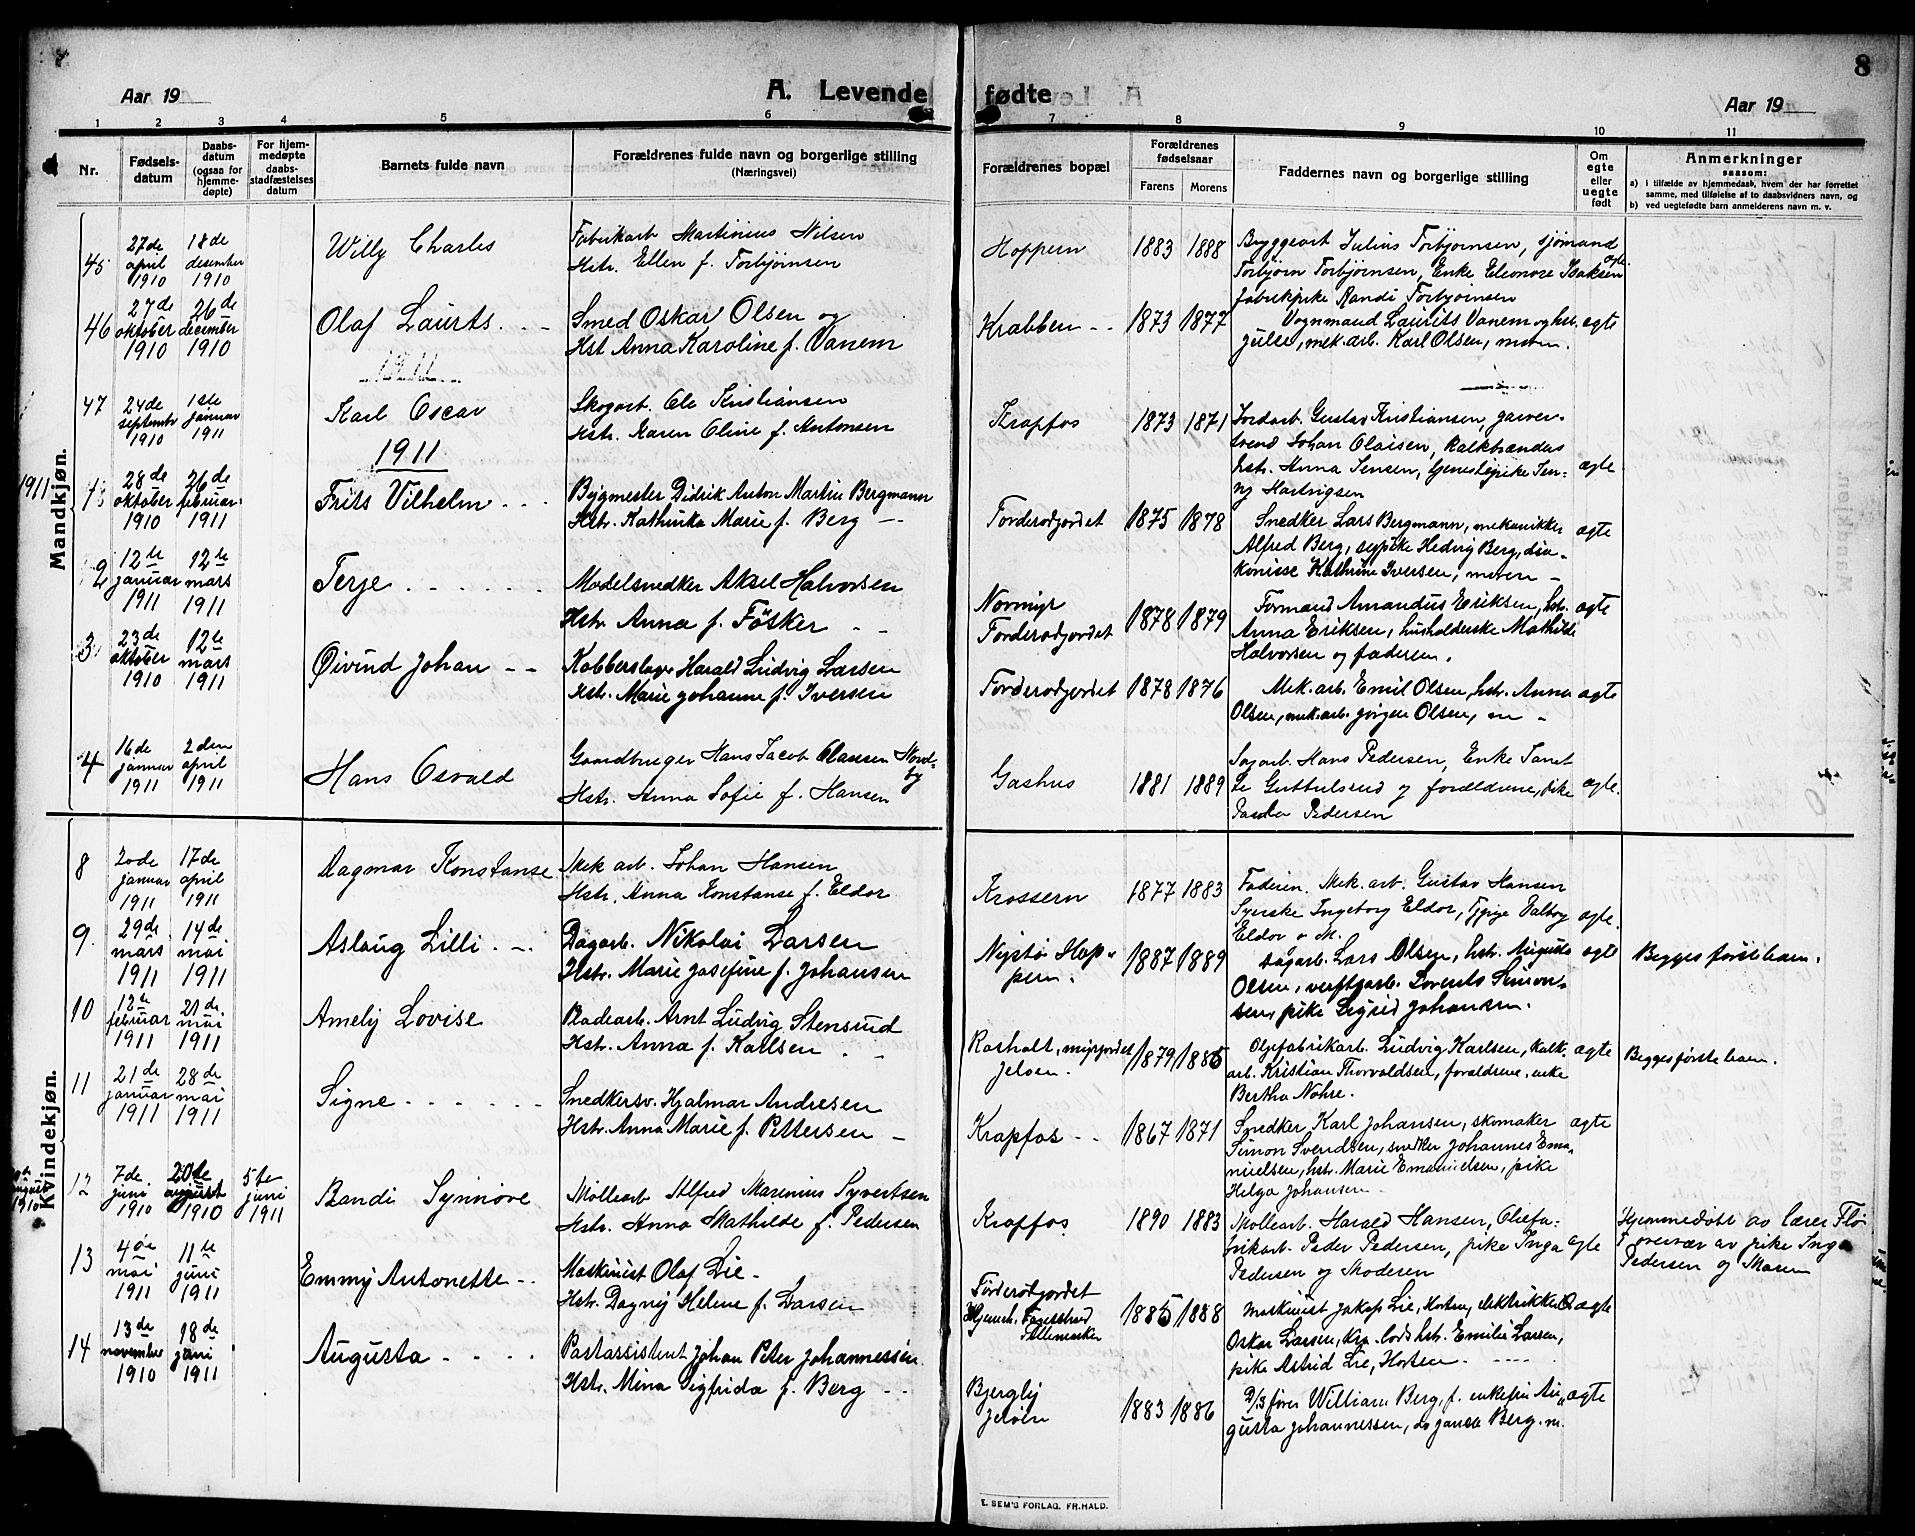 8
Aar 19
A. Levende fødte
Aar 19
1 2 3 4 5 6 7 8 9 10 11
Nr.
Fødsels-
datum
Daabs-
datum
(ogsaa for
hjemme-
døpte)
For hjem-
medøpte
daabs-
stadfæstelses
datum
Barnets fulde navn
Forældrenes fulde navn og borgerlige stilling
(Næringsvei)
Forældrenes bopæl
Forældrenes
fødselsaar
Farens Morens
Faddernes navn og borgerlige stilling
Om
egte
eller
uegte
født
Anmerkninger
saasom:
a) i tilfælde av hjemmedaab, hvem der har forrettet
samme, med tilføielse af to daabsvidners navn, og
b) ved uegtefødte barn anmelderens navn m. v.
Mandkjøn.
45 27de april 1910 18de desember 1910 Willy Charles
Fabrikarb. Martinius Nilsen
Hstr. Ellen f. Torbjørnsen
Hoppern 1883 1888
Bryggearb Julius Torbjørnsen, sjømand
Torbjørn Torbjørnsen, Enke Eleonore Isaksen
fabrikpike Randi Torbjørnsen
egte
46 27de oktober 1910 26de december 1910 Olaf Laurits
Smed Oskar Olsen og
Hst Anna Karoline f. Vanem
Krabben 1873 1877
Vognmand Laurits Vanem og hst.
Julie, mek. arb. Karl Olsen, moren.
egte
1911
47 24de september 1910 1ste januar 1911 Karl Oscar
Skogarb. Ole Kristiansen
Hstr. Karen Oline f. Antonsen
Krapfos 1873 1871
Jordarb. Gustav Kristiansen, garver-
svend Johan Olaisen, Kalkbrændas
hstr. Anna Jensen, tjenestepike Jen-
ny Hartvigsen
egte
1911
1911
1 28de oktober 1910 26de februar 1911 Frits Vilhelm
Bygmester Didrik Anton Martin Bergmann
Hstr. Kathinka Marie f. Berg
Torderødjordet 1875 1878
Snedker Lars Bergmann, mekanikker
Alfred Berg, sypike Hedvig Berg, dia-
konisse Kathrine Iversen, moren
egte
2 12te januar 1911 12te mars 1911 Terje
Modelsnedker Aksel Halvorsen
Hstr. Anna f. Fösker
Normyr
Torderødjordet 1878 1879
Formand Amandus Eriksen, hstr.
Anna Eriksen, husholderske Mathilde
Halvorsen og faderen.
egte
3 23de oktober 1910 12te mars 1911 Øivind Johan
Kobberslager Harald Ludvig Larsen
Hstr. Marie Johanne f. Iversen
Torderødjordet 1878 1876
Mek. arb. Emil Olsen, hstr. Anna
Olsen, mek. arb. Jörgen Olsen, m
egte
4 16de januar 1911 2den april 1911 Hans Osvald
Gaardbruger Hans Jacob Olausen Nord-
by
Hstr. Anna Sofie f. Hansen
Gashus 1881 1889
Sagarb. Hans Pedersen, Enke
Guttulsrud og forældrene, pike
Paula Pedersen
egte.
Kvindekjøn.
8 20de januar 1911 17de april 1911 Dagmar Konstanse
Mek arb. Johan Hansen
Hstr. Anna Konstanse f. Eldor
Krossern 1877 1883
Faderen. Mek. arb. Gustav Hansen
Syerske Ingeborg Eldor, Valborg
Eldor o M.
egte.
9. 29de mars 1911 14de mai 1911 Aslaug Lilli
Dagarb. Nikolai Larsen
Hstr. Marie Josefine f. Johansen
Nystø Hop-
pern. 1887 1889
Dagarb. Lars Olsen, hstr. Augusta
Olsen, verftsarb. Lorents Simon-
sen, pike Sigrid Johansen.
egte
Begges første barn.
10 12te februar 1911 21de mai 1911 Amely Lovise
Pladearb. Arnt Ludvig Stensrud
Hstr. Anna f. Karlsen
Rosholt, myrjordet
Jeløen. 1879 1885
Oljefabrikarb. Ludvig Karlsen, kalk-
arb. Kristian Thorvaldsen, forældrene, enke
Bertha Nøhre.
egte
Begges første barn.
11 21de januar 1911 28de mai 1911 Signe
Snedkersv. Hjalmar Andresen
Hstr. Anna Marie f. Pettersen
Krapfos 1867 1871
Snedker Karl Johansen, skomaker
Simon Svendsen, snedker Johannes Ema-
nuelsen, hstr. Marie Emanuelsen, pike
Helga Johansen
egte
12 7de juni 1910 20de august 1910 5te juni 1911 Randi Synnöve
Møllearb Alfred Marinius Syvertsen
Hstr. Anna Mathilde f. Pedersen
Krapfos 1890 1883
Møllearb. Harald Hansen, Oliefa-
brikarb. Peder Pedersen, pike Inga
Pedersen og Moderen
egte
Hjemmedøbt av lærer Flø
overvær av pike Inga
Pedersen og Moren
13 4de mai 1911 11te juni 1911 Emmy Antonette
Maskinist Olaf Lie
Hstr. Dagny Helene f. Larsen
Torderødjordet
Hjemh. Fagerstrand
1885 1888
Maskinist Jakop Lie, Horten, elektrikker
Oskar Larsen, Kra. lods hstr. Emilie Larsen,
pike Astrid Lie, Horten.
egte
14 13de november 1910 18de juni 1911 Augusta
Postassistent Johan Peter Johannessen
Hstr. Mena Sigfrida f. Berg
Bjergly
Jeløen 1883 1886
William Berg, f. enkefru Au-
gusta Johannessen, do Berg. m.
egte
E. SEM'S FORLAG, FR.HALD.